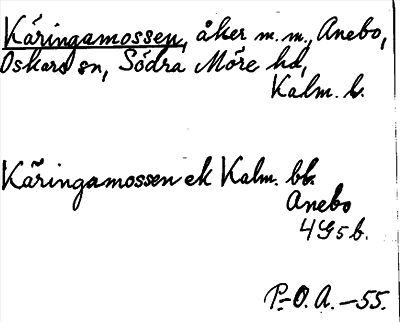 Käringamossen, åker m.m., Anebo,
Oskars sn, Södra Möre hd,
Kalm. l.
Käringamossen ek Kalm. bl.
Anebo
4G5b.
P.-O.A.-55.